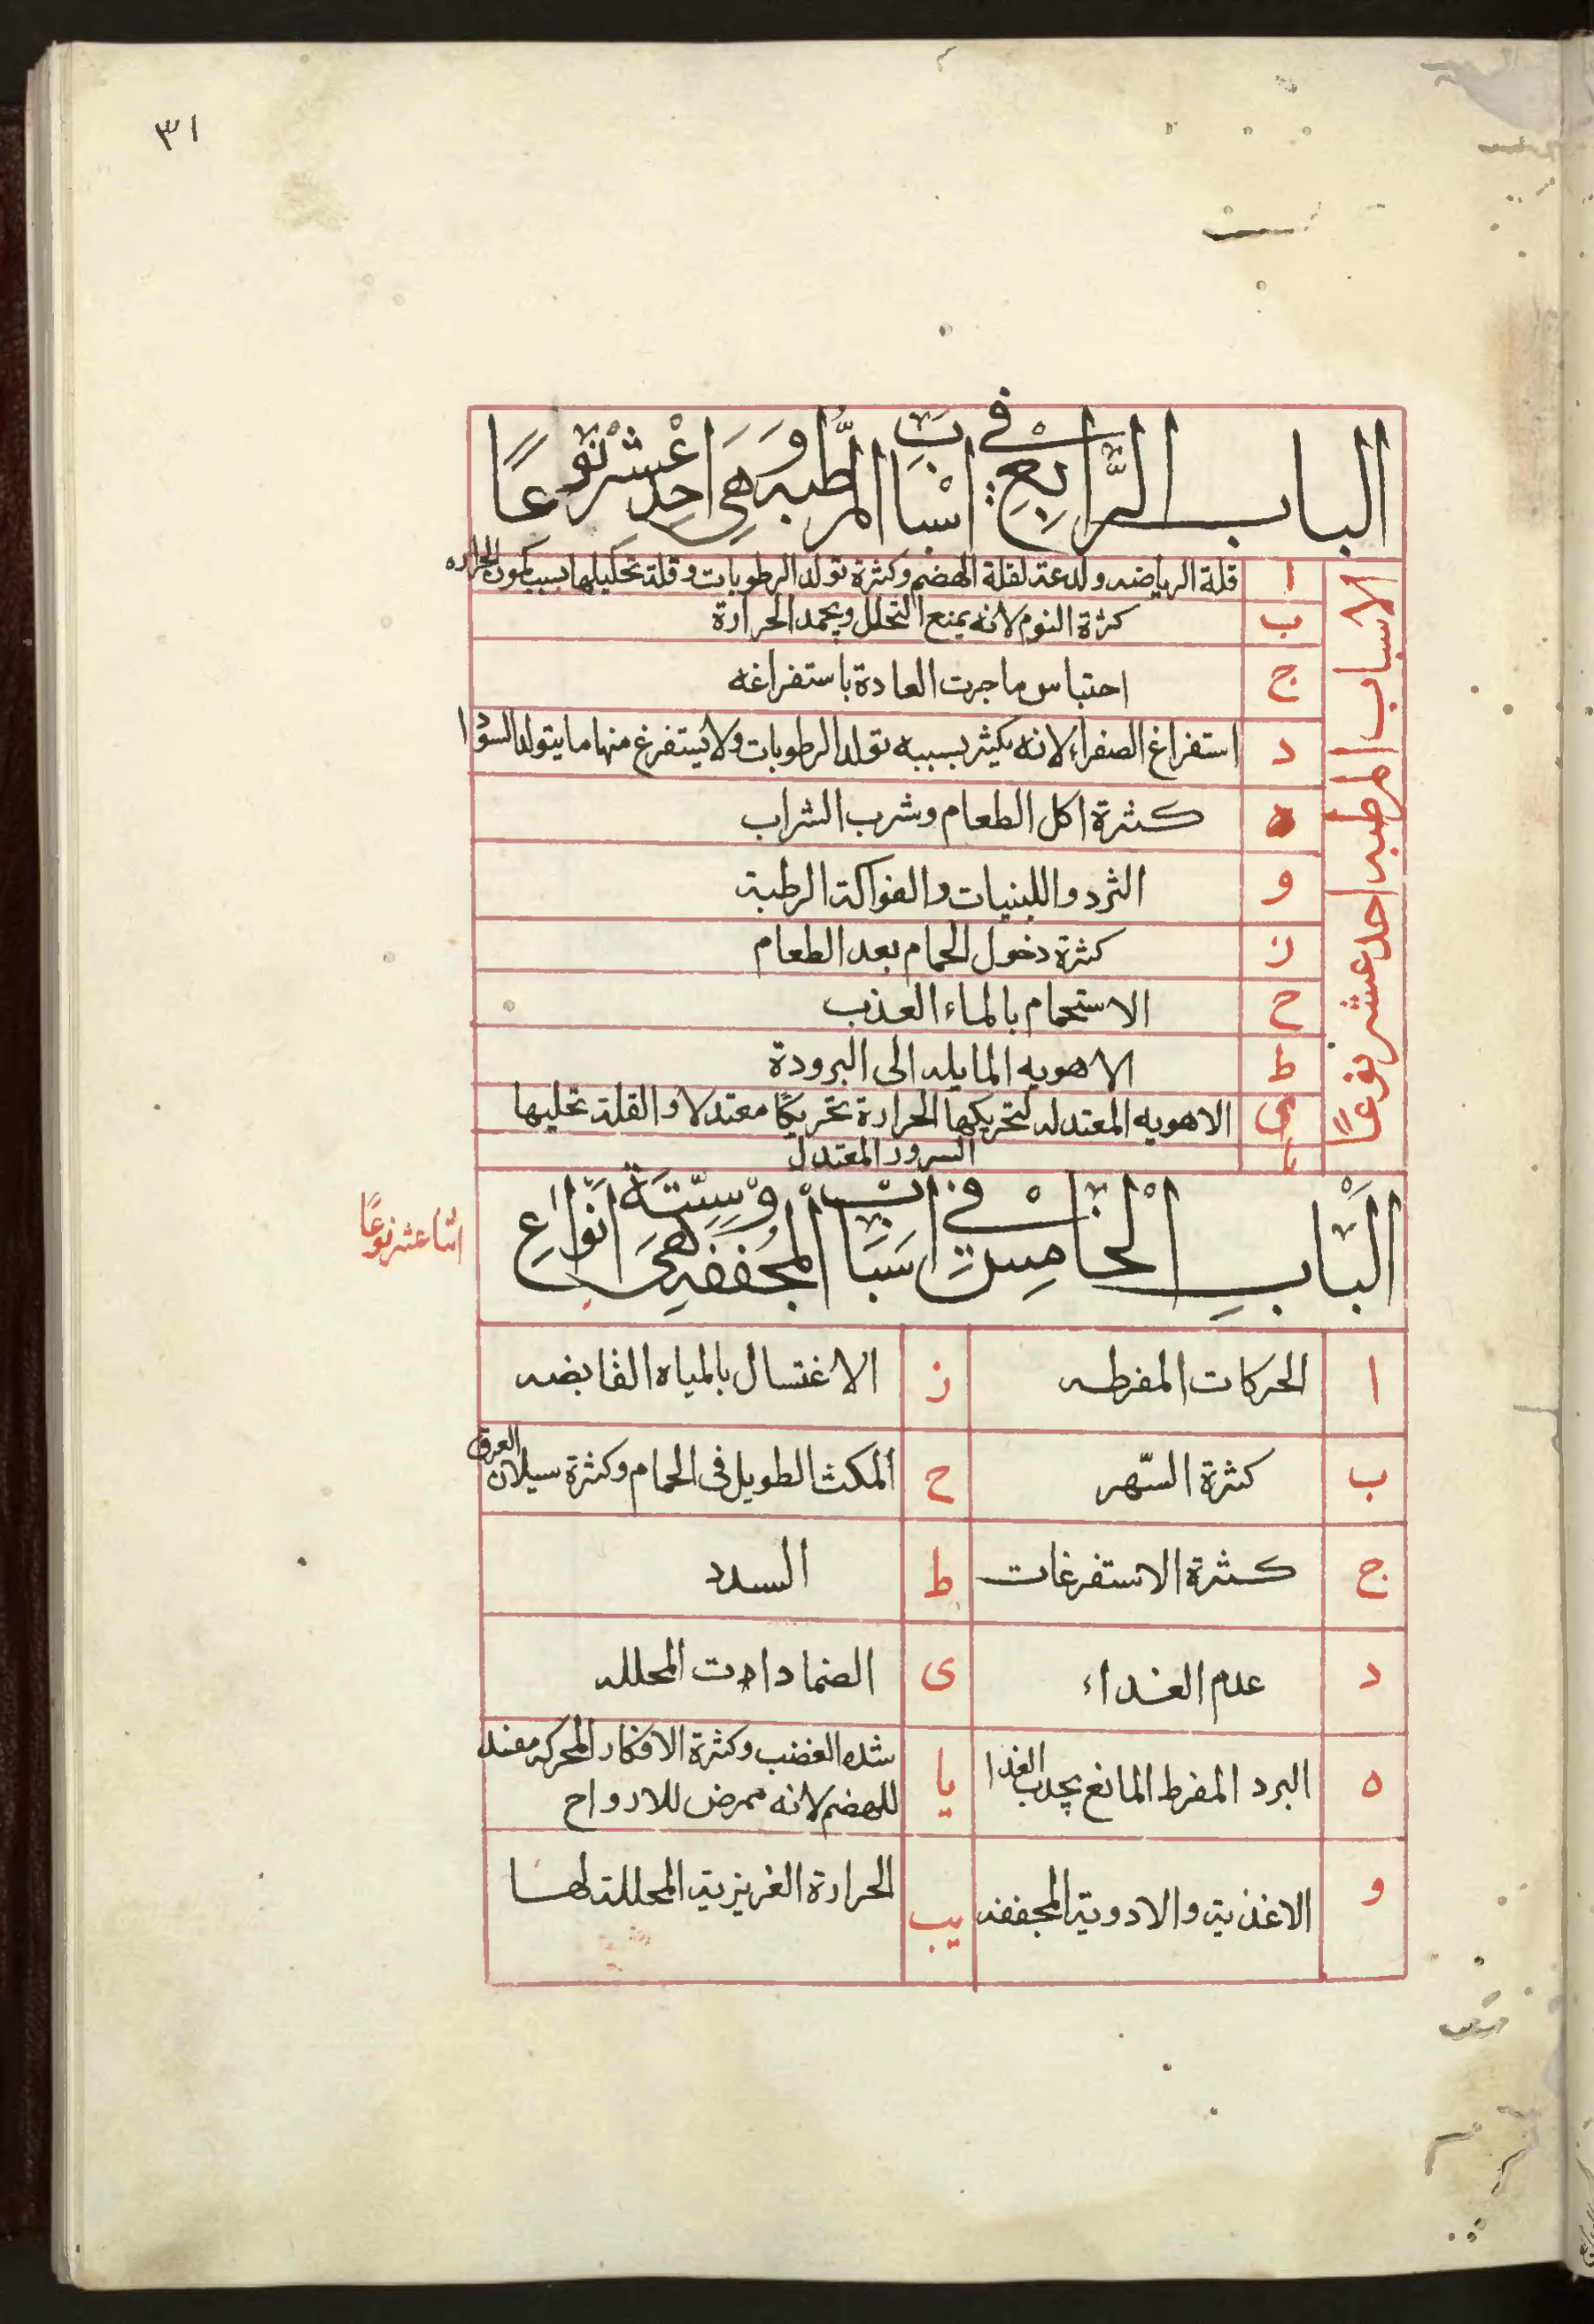 ٣١
الباب الرَّابِعْ في اسْبابِ المرَطِّبه وَهِيَ احِدَ عْشْر نَوْعًا
الاسباب المرطبه احد عشر نوعًا
ا قلة الرياضه ولدعة لقلة الهضم وكثرة تولد الرطوبات وقلة تحليلها بسبب كمون الحراره
ب كثرة النوم لانه يمنع التحلل ويجمد الحرارة
ج احتباس ما جرت العادة باستفراغه
د استفراغ الصفراء لانه يكثر بسببه تولد الرطوبات ولا يستفرغ منها ما يتولد السودا
ه كثرة اكل الطعام وشرب الشراب
و الثرد واللبنيات والفواكة الرطبة
ز كثرة دخول الحمام بعد الطعام
ح الاستحمام بالماء العذب
ط الاهويه المايله الى البرودة
ى الاهويه المعتدله لتحريكها الحرارة تحريكًا معتدلا والقلة تحليها
يا السرور المعتدل
اَلْبَاب الْخامِسْ في اسَبَابْ المجُففه وْهَي سِتَّة انَواعِ
اثنا عشر نوعًا
ا الحركات المفرطه
ز الاغتسال بالمياه القابضه
ب كثرة السّهر
ح المكث الطويل فى الحمام وكثرة سيلان العرق
ج كثرة الاستفرغات
ط السدد
د عدم الغداء
ى الضمادات المحلله
ه البرد المفرط المانع بجدب الغدا
يا شده الغضب وكثرة الافكار المحركه مفند
للهضم لانه ممرض للارواح
و الاغذية والادوية المجففه
يب الحرارة الغريزية المحللة لها